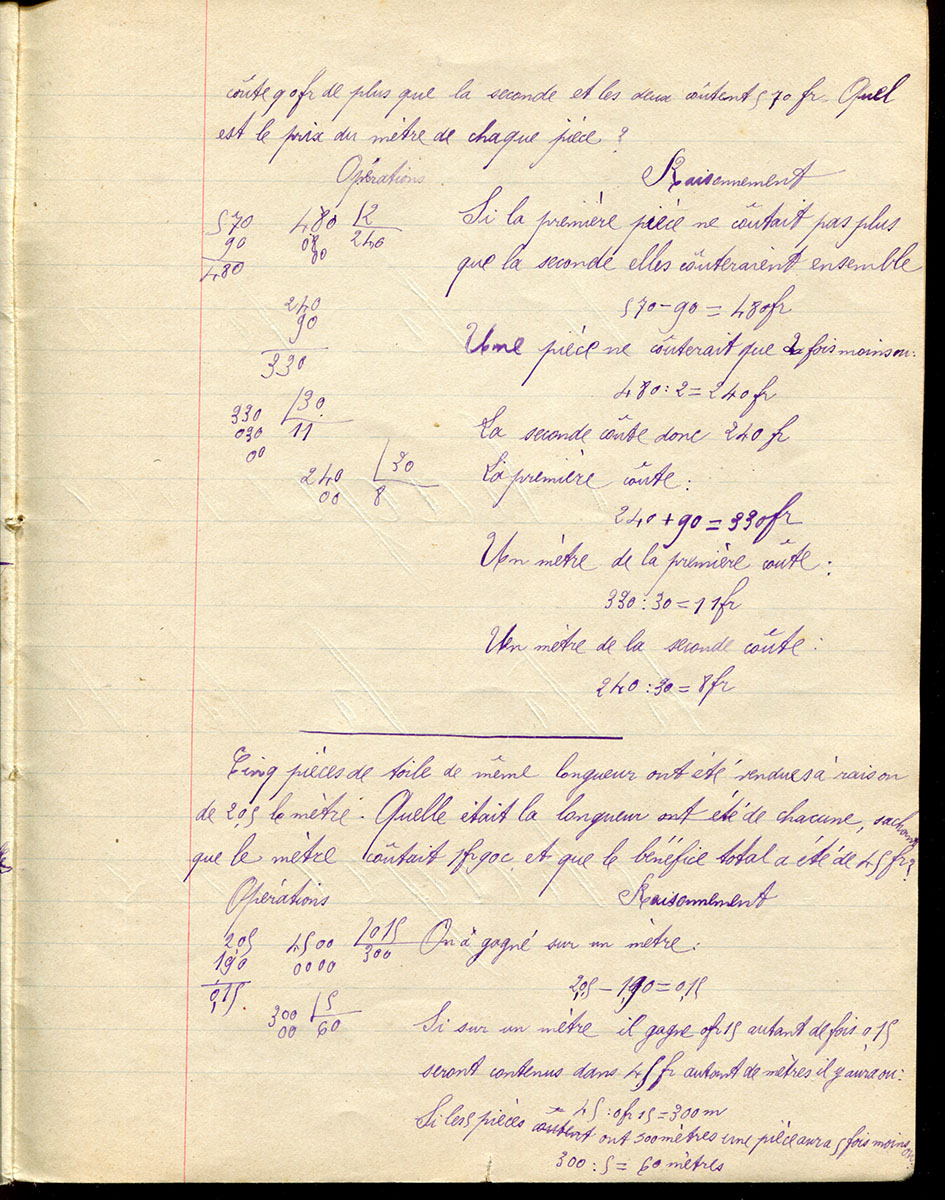 coûte 90fr de plus que la seconde et les deux coûtent 570 fr. Quel
est le prix du mètre de chaque pièce ?
Opérations
Raisonnement
570 480 |2
90 08 240
480 00
240
90
330
330 |30
030 11
00
240 |30
00 8
Si la première pièce ne coûtait pas plus
que la seconde elles coûteraient ensemble
570 - 90 = 480fr
Une pièce ne coûterait que 2 fois moins ou :
480 : 2 = 240 fr
La seconde coûte donc 240 fr
La première coûte :
240 + 90 = 330fr
Un mètre de la première coûte :
330 : 30 = 11fr
Un mètre de la seconde coûte :
240 : 30 = 8fr
Cinq pièces de toile de même longueur ont été vendues à raison
de 2,05 le mètre. Quelle était la longueur ont été de chacune, sachant
que le mètre coûtait 1fr90c et que le bénéfice total a été de 45fr ?
Opérations
Raisonnement
2,05 4500 |015
1,90 0000 300
0,15
300 |5
00 60
On a gagné sur un mètre :
2,05 - 1,90 = 0,15
Si sur un mètre il gagne 0fr15 autant de fois 0,15
seront contenus dans 45 fr autant de mètres il y aura ou :
45 : 0fr15 = 300m
Si les 5 pièces coûtent ont 300 mètres une pièce aura 5 fois moins ou :
300 : 5 = 60 mètres